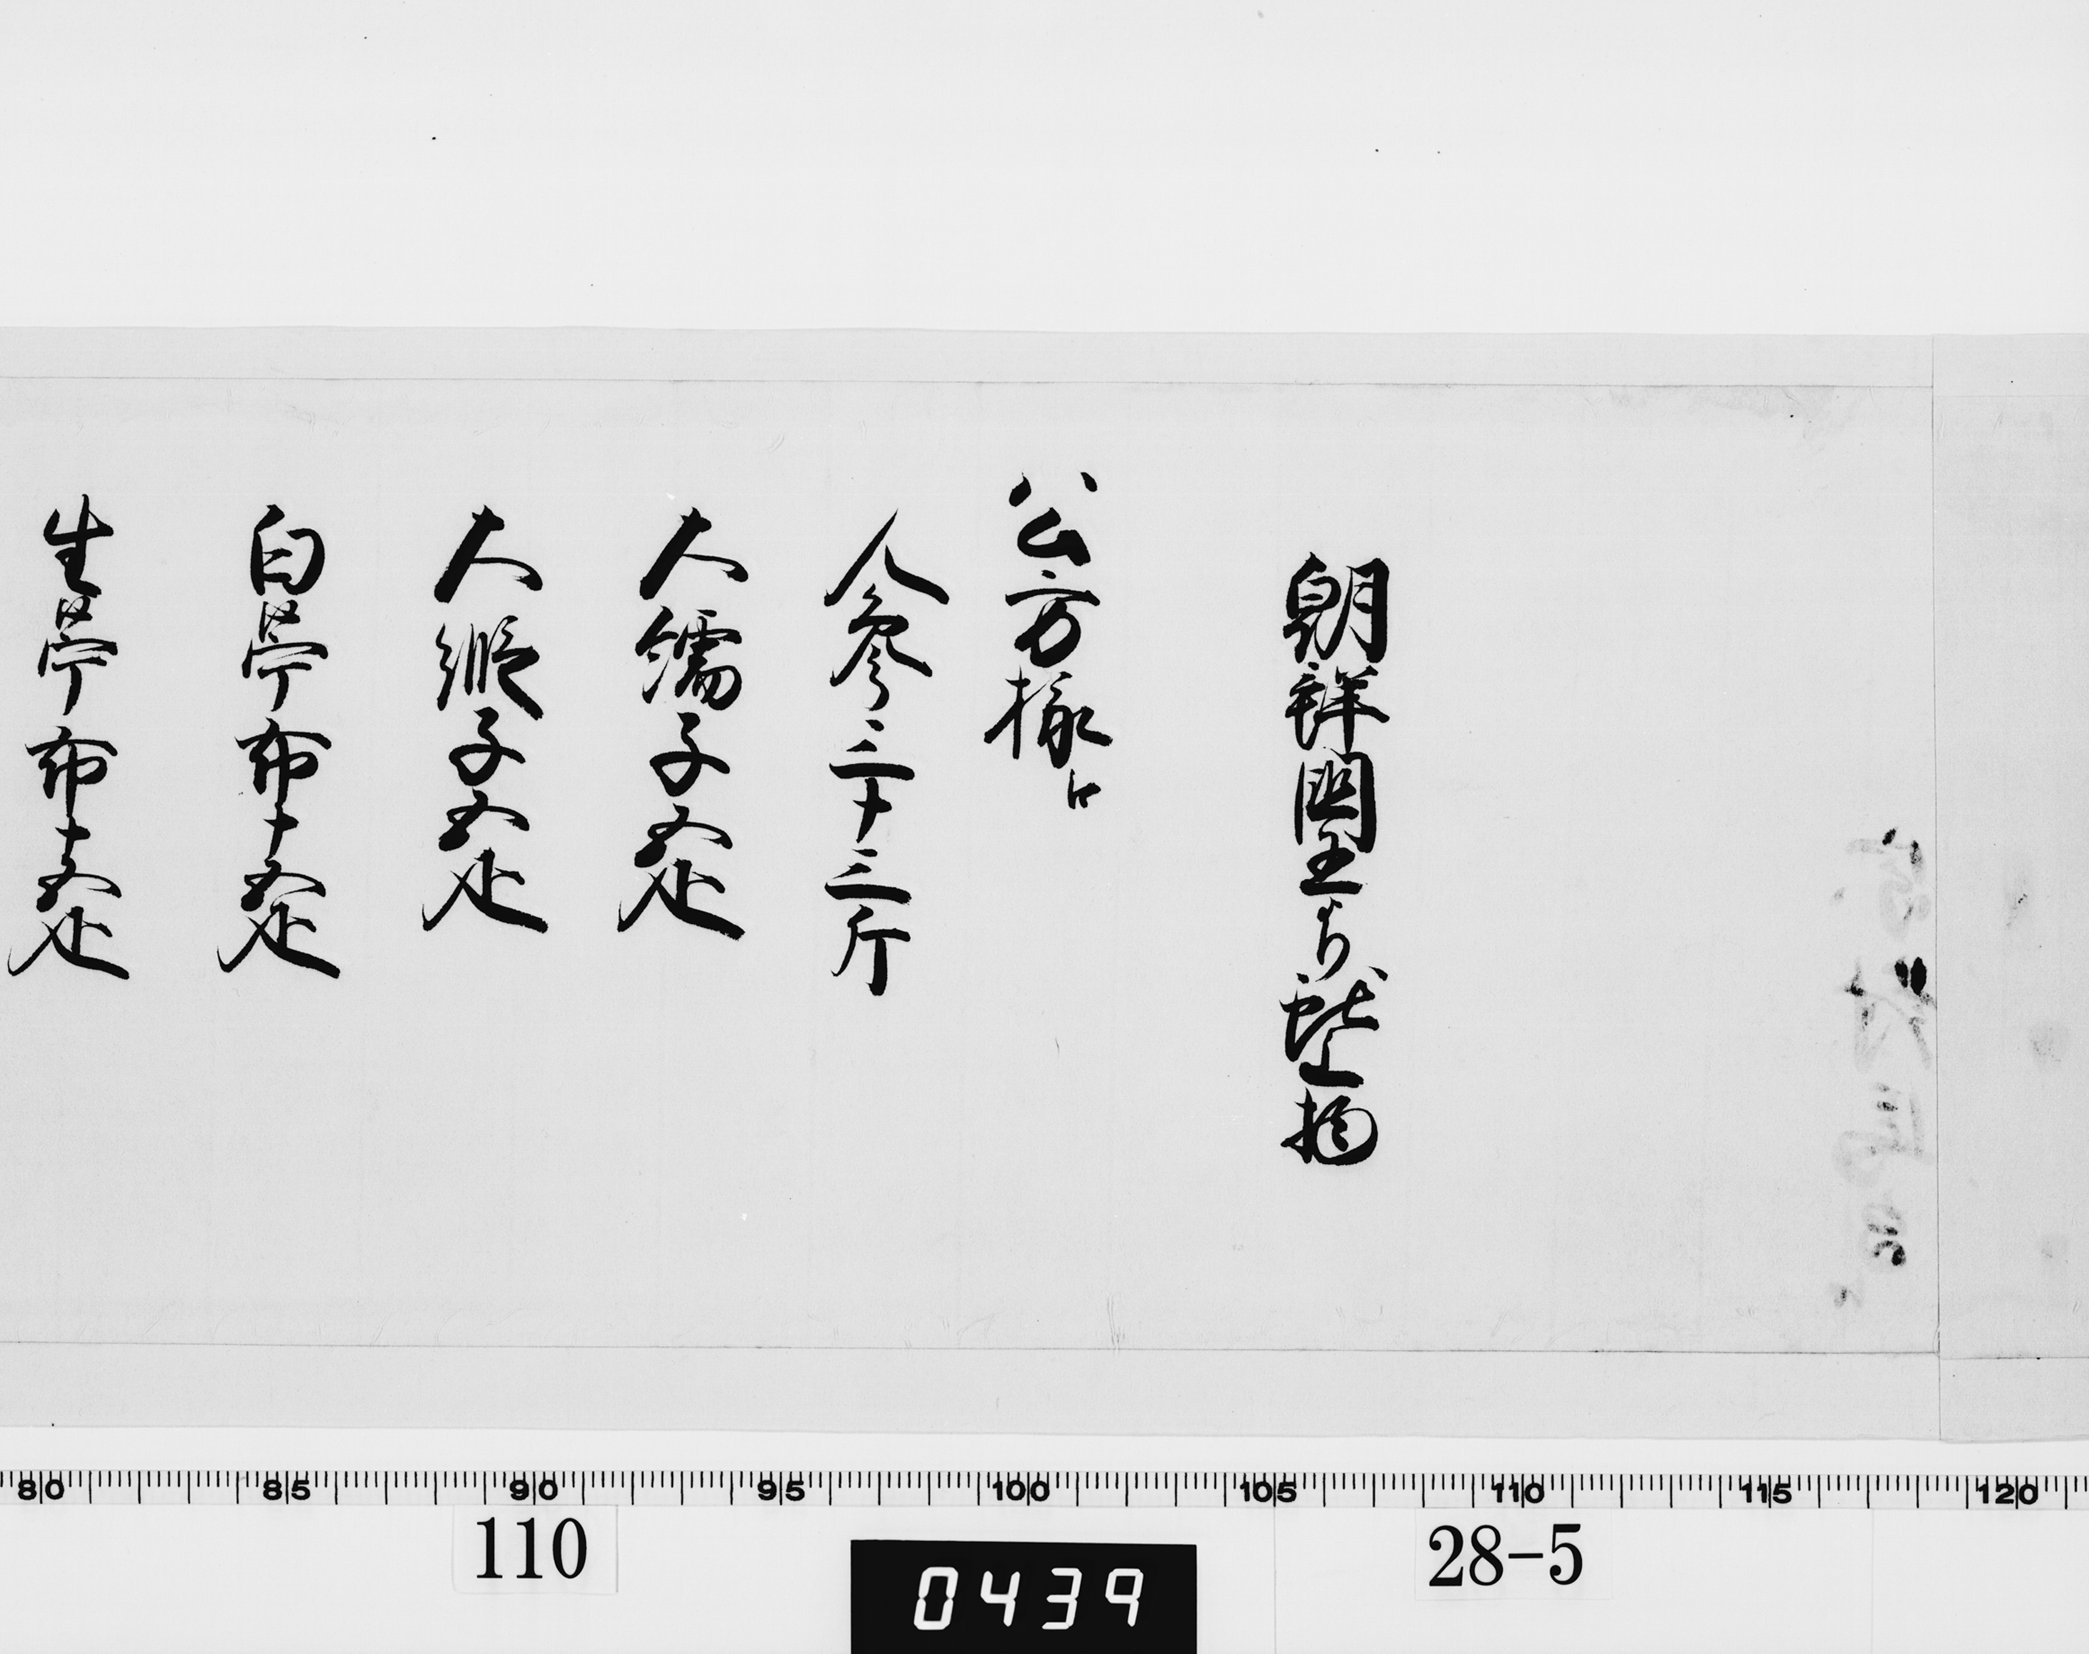 朝鮮國王より献上物
公方様江
人参三十三斤
大繻子五疋
大縀子五疋
白苧布十五疋
生苧布十五疋
80 85 90 95 100 105 110 115 120
110
0439
28-5